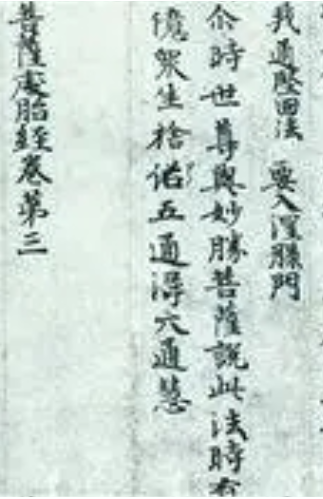 我通堅固法 要入深勝門
尒時世尊與妙勝菩薩說此法時有
億眾生捨俗五通得六通慧
菩薩處胎經卷第三